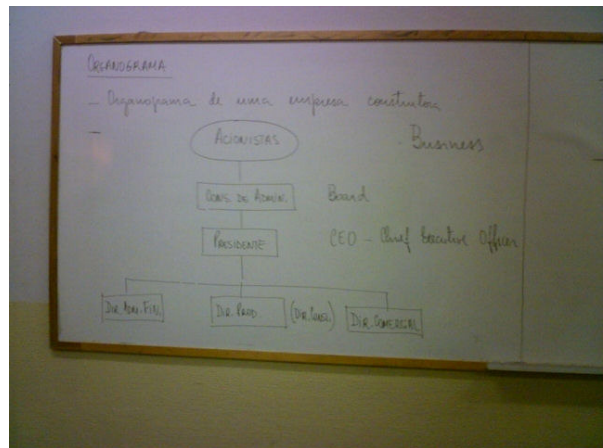 ORGANOGRAMA
- Organograma de uma empresa construtora
-
ACIONISTAS - Business
CONS. DE ADMIN. Board
PRESIDENTE CEO - Chief Executive Officer
DIR. ADM. FIN. DIR. PROD. (DIR. CONST.) DIR. COMERCIAL